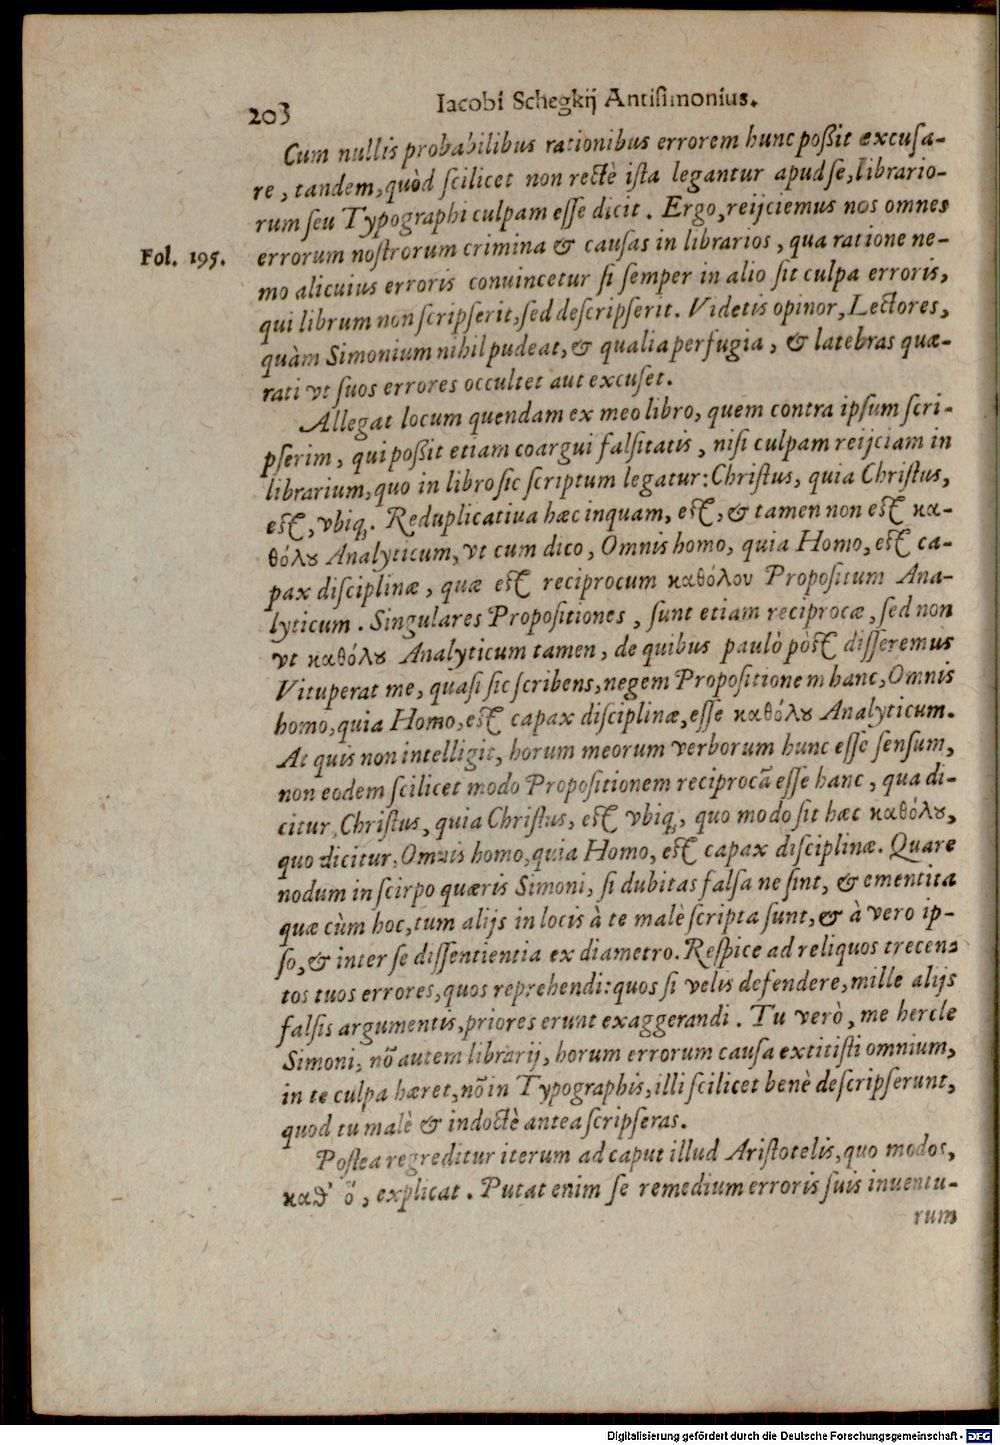 203
Iacobi Schegkij Antisimonius.
Cum nullis probabilibus rationibus errorem hunc poßit excusa-
re, tandem, quòd scilicet non rectè ista legantur apud se, librario-
rum seu Typographi culpam esse dicit. Ergo, reijciemus nos omnes
Fol. 195.
errorum nostrorum crimina & causas in librarios, qua ratione ne-
mo alicuius erroris conuincetur si semper in alio sit culpa erroris,
qui librum non scripserit, sed descripserit. Videtis opinor, Lectores,
quàm Simonium nihil pudeat, & qualia perfugia, & latebras quæ-
rati vt suos errores occultet aut excuset.
Allegat locum quendam ex meo libro, quem contra ipsum scri-
pserim, qui poßit etiam coargui falsitatis, nisi culpam reijciam in
librarium, quo in libro sic scriptum legatur: Christus, quia Christus,
est, vbiq;. Reduplicatiua hæc inquam, est, & tamen non est κα-
θόλȣ Analyticum, vt cum dico, Omnis homo, quia Homo, est ca-
pax disciplinæ, quæ est reciprocum καθόλου Propositum Ana-
lyticum. Singulares Propositiones, sunt etiam reciprocæ, sed non
vt καθόλȣ Analyticum tamen, de quibus paulò pòst disseremus
Vituperat me, quasi sic scribens, negem Propositionem hanc, Omnis
homo, quia Homo, est capax disciplinæ, esse καθόλȣ Analyticum.
At quis non intelligit, horum meorum verborum hunc esse sensum,
non eodem scilicet modo Propositionem reciprocã esse hanc, qua di-
citur, Christus, quia Christus, est vbiq;, quo modo sit hæc καθόλȣ,
quo dicitur, Omnis homo, quia Homo, est capax disciplinæ. Quare
nodum in scirpo quæris Simoni, si dubitas falsa ne sint, & ementita
quæ cùm hoc, tum alijs in locis à te malè scripta sunt, & à vero ip-
so, & inter se dissentientia ex diametro. Respice ad reliquos trecen-
tos tuos errores, quos reprehendi: quos si velis defendere, mille alijs
falsis argumentis, priores erunt exaggerandi. Tu verò, me hercle
Simoni, nõ autem librarij, horum errorum causa extitisti omnium,
in te culpa hæret, nõ in Typographis, illi scilicet benè descripserunt,
quod tu malè & indoctè antea scripseras.
Postea regreditur iterum ad caput illud Aristotelis, quo modos,
καθ' ὅ, explicat. Putat enim se remedium erroris suis inuentu-
rum
Digitalisierung gefördert durch die Deutsche Forschungsgemeinschaft - DFG